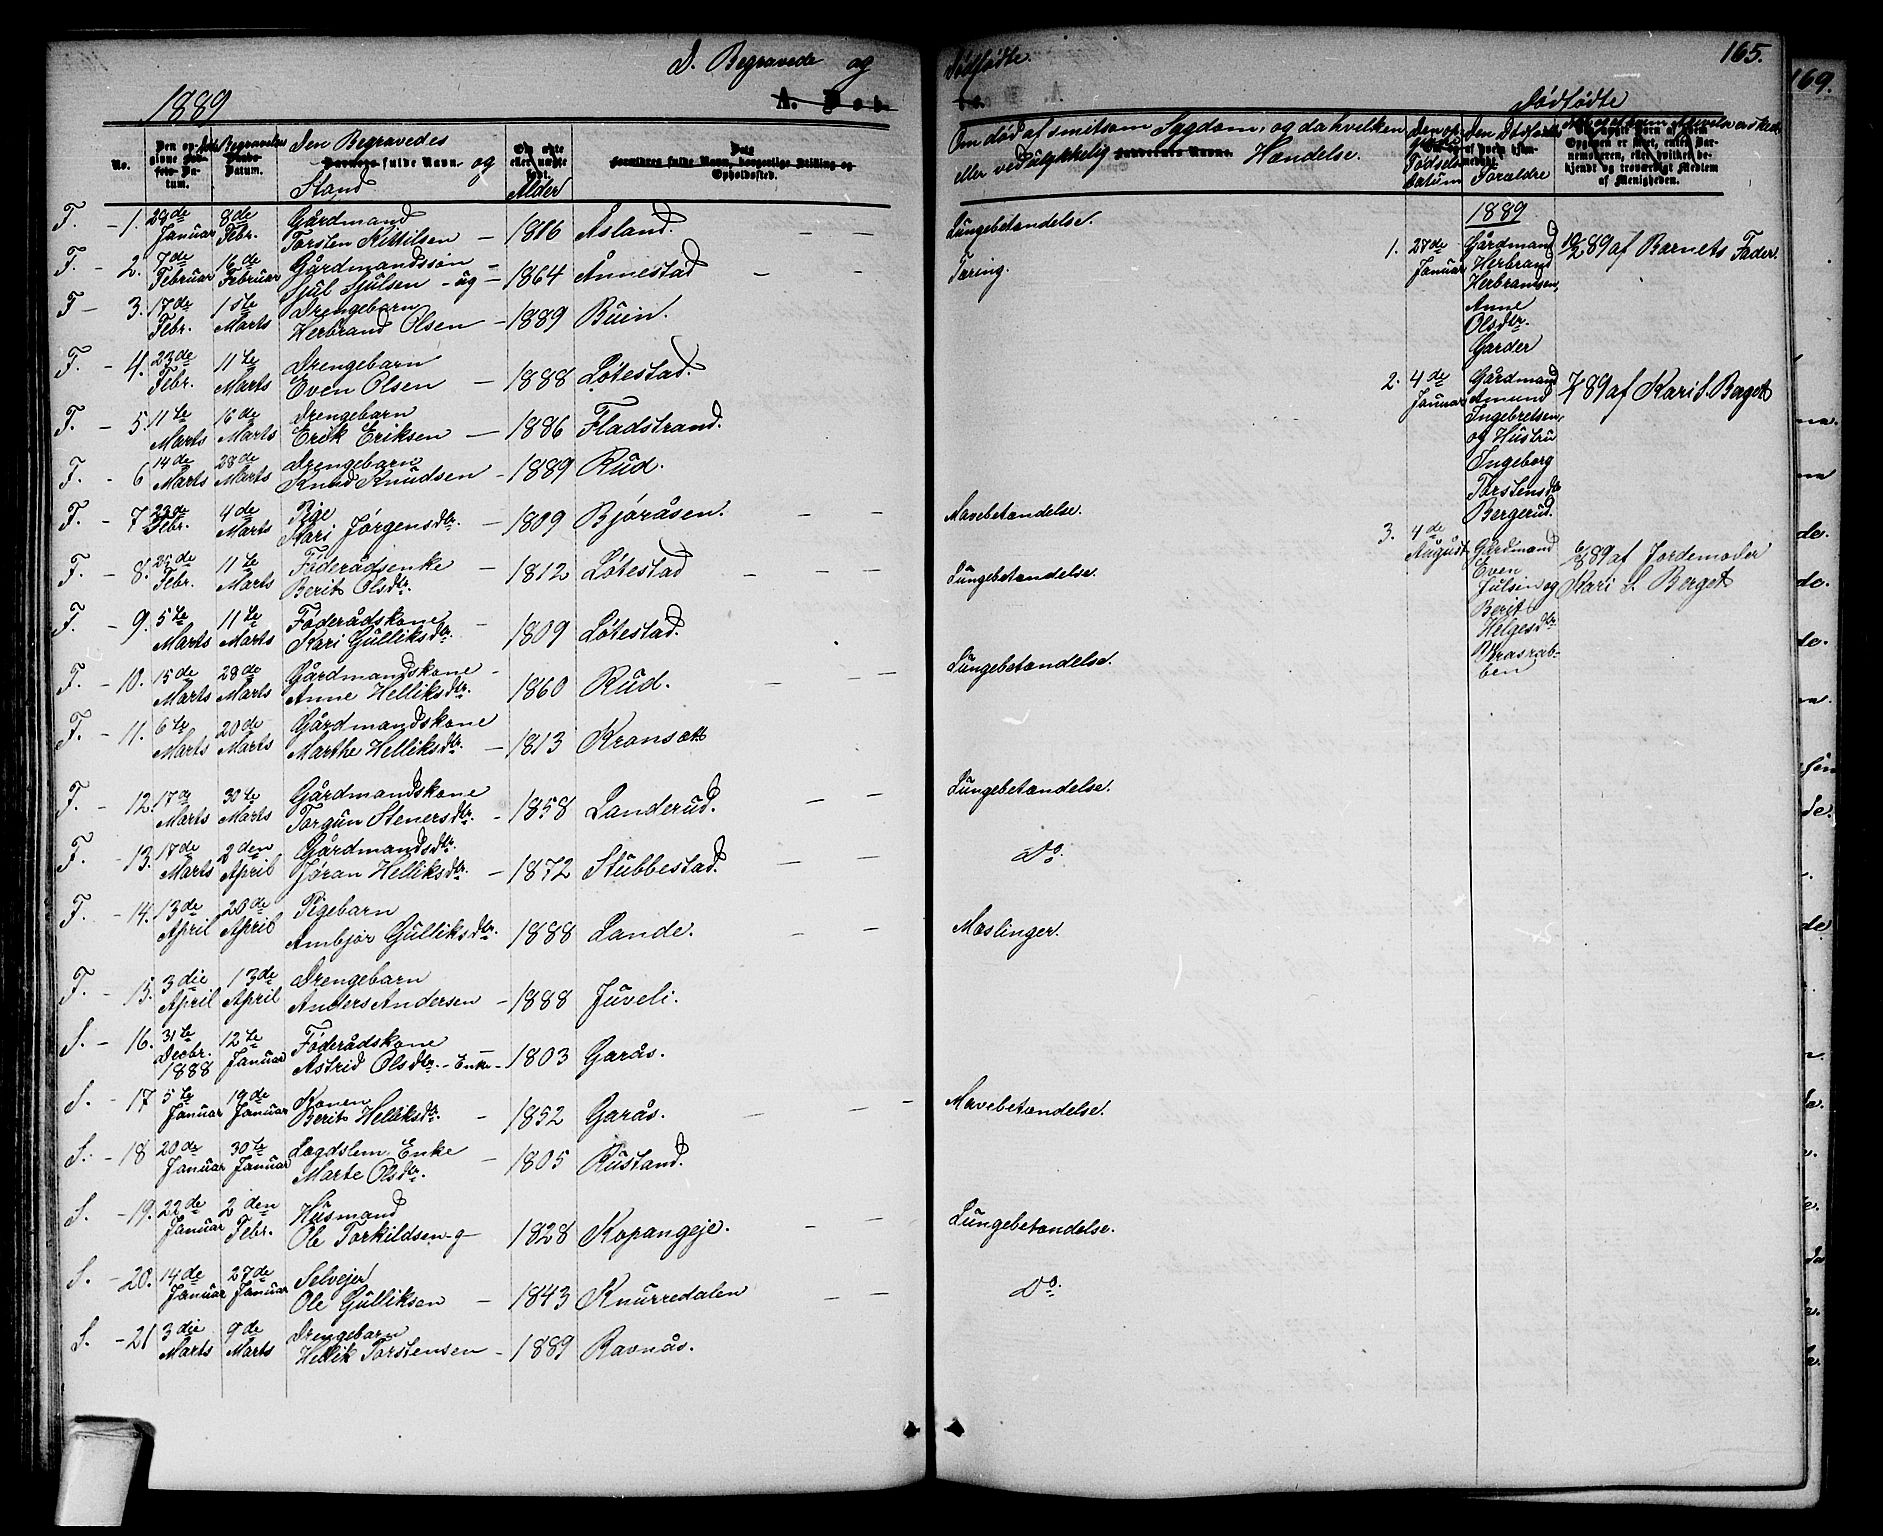 D. Begravede og Dødfødte.
165.
169.
1889
A. Døbte.
Dødfødte
No.
Den Begravedes
Barnets fulde Navn og
Stand
Alder
Opholdssted.
Om død af smitsom Sygdom, og da hvilken
eller ved ulykkelig Hændelse.
Fødsels
datum
Den Dødfødte
Forældre
F. - 1. 28de Januar 8de Febr. Gårdmand
Torsten Kittilsen - 1816 Åsland. - - Lungebetændelse.
F. - 2. 7de Februar 16de Februar Gårdmandssøn -
Sjul Sjulsen - ug - 1864 Ånnestad - - Tæring.
F - 3. 17de Febr. 1ste Marts Drengebarn
Herbrand Olsen - 1889 Buin.
F. - 4. 23de Febr. 11te Marts Drengebarn
Even Olsen - 1888 Løtestad.
F. - 5. 11te Marts 16de Marts Drengebarn
Erik Eriksen - 1886 Fladstrand.
F. - 6 14de Marts 28de Marts Drengebarn
Knud Knudsen - 1889 Rud.
F. - 7. 23de Febr. 4de Marts Pige
Kari Jørgensdtr. - 1809 Bjøråsen. - - Mavebetændelse.
F. - 8. 25de Febr. 11te Marts Føderådsenke
Berit Olsdtr. - 1812 Løtestad - - - Lungebetændelse.
F. - 9. 5te Marts 11te Marts Føderådskone
Kari Gulliksdtr. - 1809 Løtestad.
F. - 10. 15de Marts 28de Marts Gårdmandskone -
Anne Helliksdtr. 1860 Rud. - - - Lungebetændelse.
F. - 11. 6te Marts 20de Marts Gårdmandskone
Marthe Helliksdtr. - 1813 Kronsætt
F. - 12. 17de Marts 30te Marts Gårdmandskone
Torgun Stenersdtr. - 1858 Landerud. - - Lungebetændelse.
F. - 13. 17de Marts 2den April Gårdmandsdtr.
Jøran Helliksdtr. - 1872 Stubbestad. - - Do.
F. - 14. 13de April 20de April Pigebarn
Ambjør Gulliksdtr. - 1888 Lande. - - Mæslinger.
F. - 15. 3die April 13de April Drengebarn
Anders Andersen - 1888 Juveli.
S. - 16. 31te Decbr. 1888 12te Januar Føderådskone
Astrid Olsdtr. - Enke - 1803 Garås.
S. - 17 5te Januar 19de Januar Konen
Berit Helliksdtr. - 1852 Garås. - - - Mavebetændelse.
S. - 18 20de Januar 30te Januar Lægdslem, Enke
Marte Olsdtr. - 1805 Rustand.
S. - 19. 22de Januar 2den Febr. Husmand
Ole Torkildsen - g - 1828 Kopangeje. - - Lungebetændelse.
S. - 20. 14de Januar 27de Januar Selvejer
Ole Gulliksen - 1843 Knurredalen - - Do.
S. - 21 3die Marts 9de Marts Drengebarn
Hellik Torstensen - 1889 Ravnås.
1889
1. 27de Januar Gårdmand
Herbrand
Herbrandsen,
Anne
Olsdtr.
Garder
10/2 89 af Barnets Fader.
2. 4de Januar Gårdmand
Amund
Ingebretsen,
og Hustru
Ingeborg
Torstensdtr
Bergerud.
89 af Kari S. Berget
3. 4de August Gårdmand
Even
Julsen og
Berit
Helgesdtr
89 af Jordemoder
Kari S. Berget